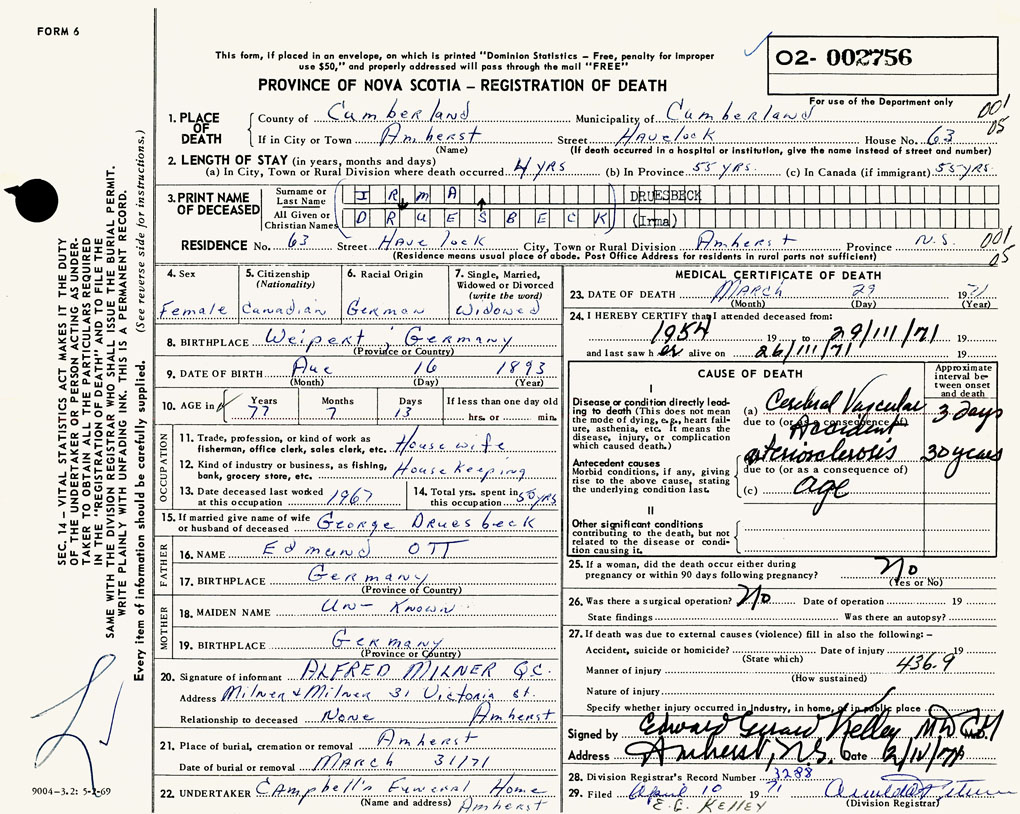 FORM 6
This form, if placed in an envelope, on which is printed "Dominion Statistics – Free, penalty for improper
use $50," and properly addressed will pass through the mail "FREE"
PROVINCE OF NOVA SCOTIA – REGISTRATION OF DEATH
O2- 002756
For use of the Department only
001
05
1. PLACE OF DEATH
County of Cumberland Municipality of Cumberland
If in City or Town Amherst Street Havelock House No. 63
(Name) (If death occurred in a hospital or institution, give the name instead of street and number)
2. LENGTH OF STAY (in years, months and days)
(a) In City, Town or Rural Division where death occurred 4 yrs (b) In Province 55 yrs. (c) In Canada (if immigrant) 55 yrs.
3. PRINT NAME OF DECEASED
Surname or Last Name IRMA DRUESBECK
All Given or Christian Names DRUESBECK (Irma)
RESIDENCE No. 63 Street Havelock City, Town or Rural Division Amherst Province N.S. 001
05
(Residence means usual place of abode. Post Office Address for residents in rural parts not sufficient)
4. Sex
Female
5. Citizenship (Nationality)
Canadian
6. Racial Origin
German
7. Single, Married, Widowed or Divorced (write the word)
Widowed
8. BIRTHPLACE Weipert Germany
(Province or Country)
9. DATE OF BIRTH Auc 16 1893
(Month) (Day) (Year)
10. AGE in Years 77 Months 7 Days 13 If less than one day old
hrs. or min.
OCCUPATION
11. Trade, profession, or kind of work as
fisherman, office clerk, sales clerk, etc. Housewife
12. Kind of industry or business, as fishing,
bank, grocery store, etc. Housekeeping
13. Date deceased last worked
at this occupation 1967
14. Total yrs. spent in
this occupation 55 yrs
15. If married give name of wife
or husband of deceased George Druesbeck
FATHER
16. NAME Edmund OTT
17. BIRTHPLACE Germany
(Province of Country)
MOTHER
18. MAIDEN NAME Un-Known
19. BIRTHPLACE Germany
(Province or Country)
20. Signature of informant ALFRED MILNER QC.
Address Milner & Milner 31 Victoria st.
Relationship to deceased None Amherst
21. Place of burial, cremation or removal Amherst
Date of burial or removal March 31/71
22. UNDERTAKER Campbell's Funeral Home
(Name and address) Amherst
MEDICAL CERTIFICATE OF DEATH
23. DATE OF DEATH March 29 1971
(Month) (Day) (Year)
24. I HEREBY CERTIFY that I attended deceased from:
1954 19 to 29/III/71 19
and last saw her alive on 26/III/71 19
CAUSE OF DEATH
Approximate interval between onset and death
I
Disease or condition directly leading to death (This does not
mean the mode of dying, e.g., heart failure, asthenia, etc. It means the
disease, injury, or complication
which caused death.)
(a) Cerebral Vascular Accident 3 days
due to (or as a consequence of)
Antecedent causes
Morbid conditions, if any, giving
rise to the above cause, stating
the underlying condition last.
arteriosclerosis 30 years
due to (or as a consequence of)
(c) age
II
Other significant conditions
contributing to the death, but not
related to the disease or condition causing it.
25. If a woman, did the death occur either during
pregnancy or within 90 days following pregnancy? No
(Yes or No)
26. Was there a surgical operation? No Date of operation 19
State findings Was there an autopsy?
27. If death was due to external causes (violence) fill in also the following: –
Accident, suicide or homicide? Date of injury 19
(State which)
436.9
Manner of injury
(How sustained)
Nature of injury
Specify whether injury occurred in Industry, in home, or in public place
Signed by Edward Kelley MD M.D.
Address Amherst, N.S. Date 2/IV/71
28. Division Registrar's Record Number 3288
29. Filed April 10 1971
(Division Registrar)
E.G. KELLEY
SEC. 14 – VITAL STATISTICS ACT MAKES IT THE DUTY
OF THE UNDERTAKER OR PERSON ACTING AS UNDERTAKER TO OBTAIN ALL THE PARTICULARS REQUIRED
IN THE "REGISTRATION OF DEATH" AND TO FILE THE
SAME WITH THE DIVISION REGISTRAR WHO SHALL ISSUE THE BURIAL PERMIT.
WRITE PLAINLY WITH UNFADING INK. THIS IS A PERMANENT RECORD.
Every item of information should be carefully supplied. (See reverse side for instructions.)
9004-3.2: 5-2-69